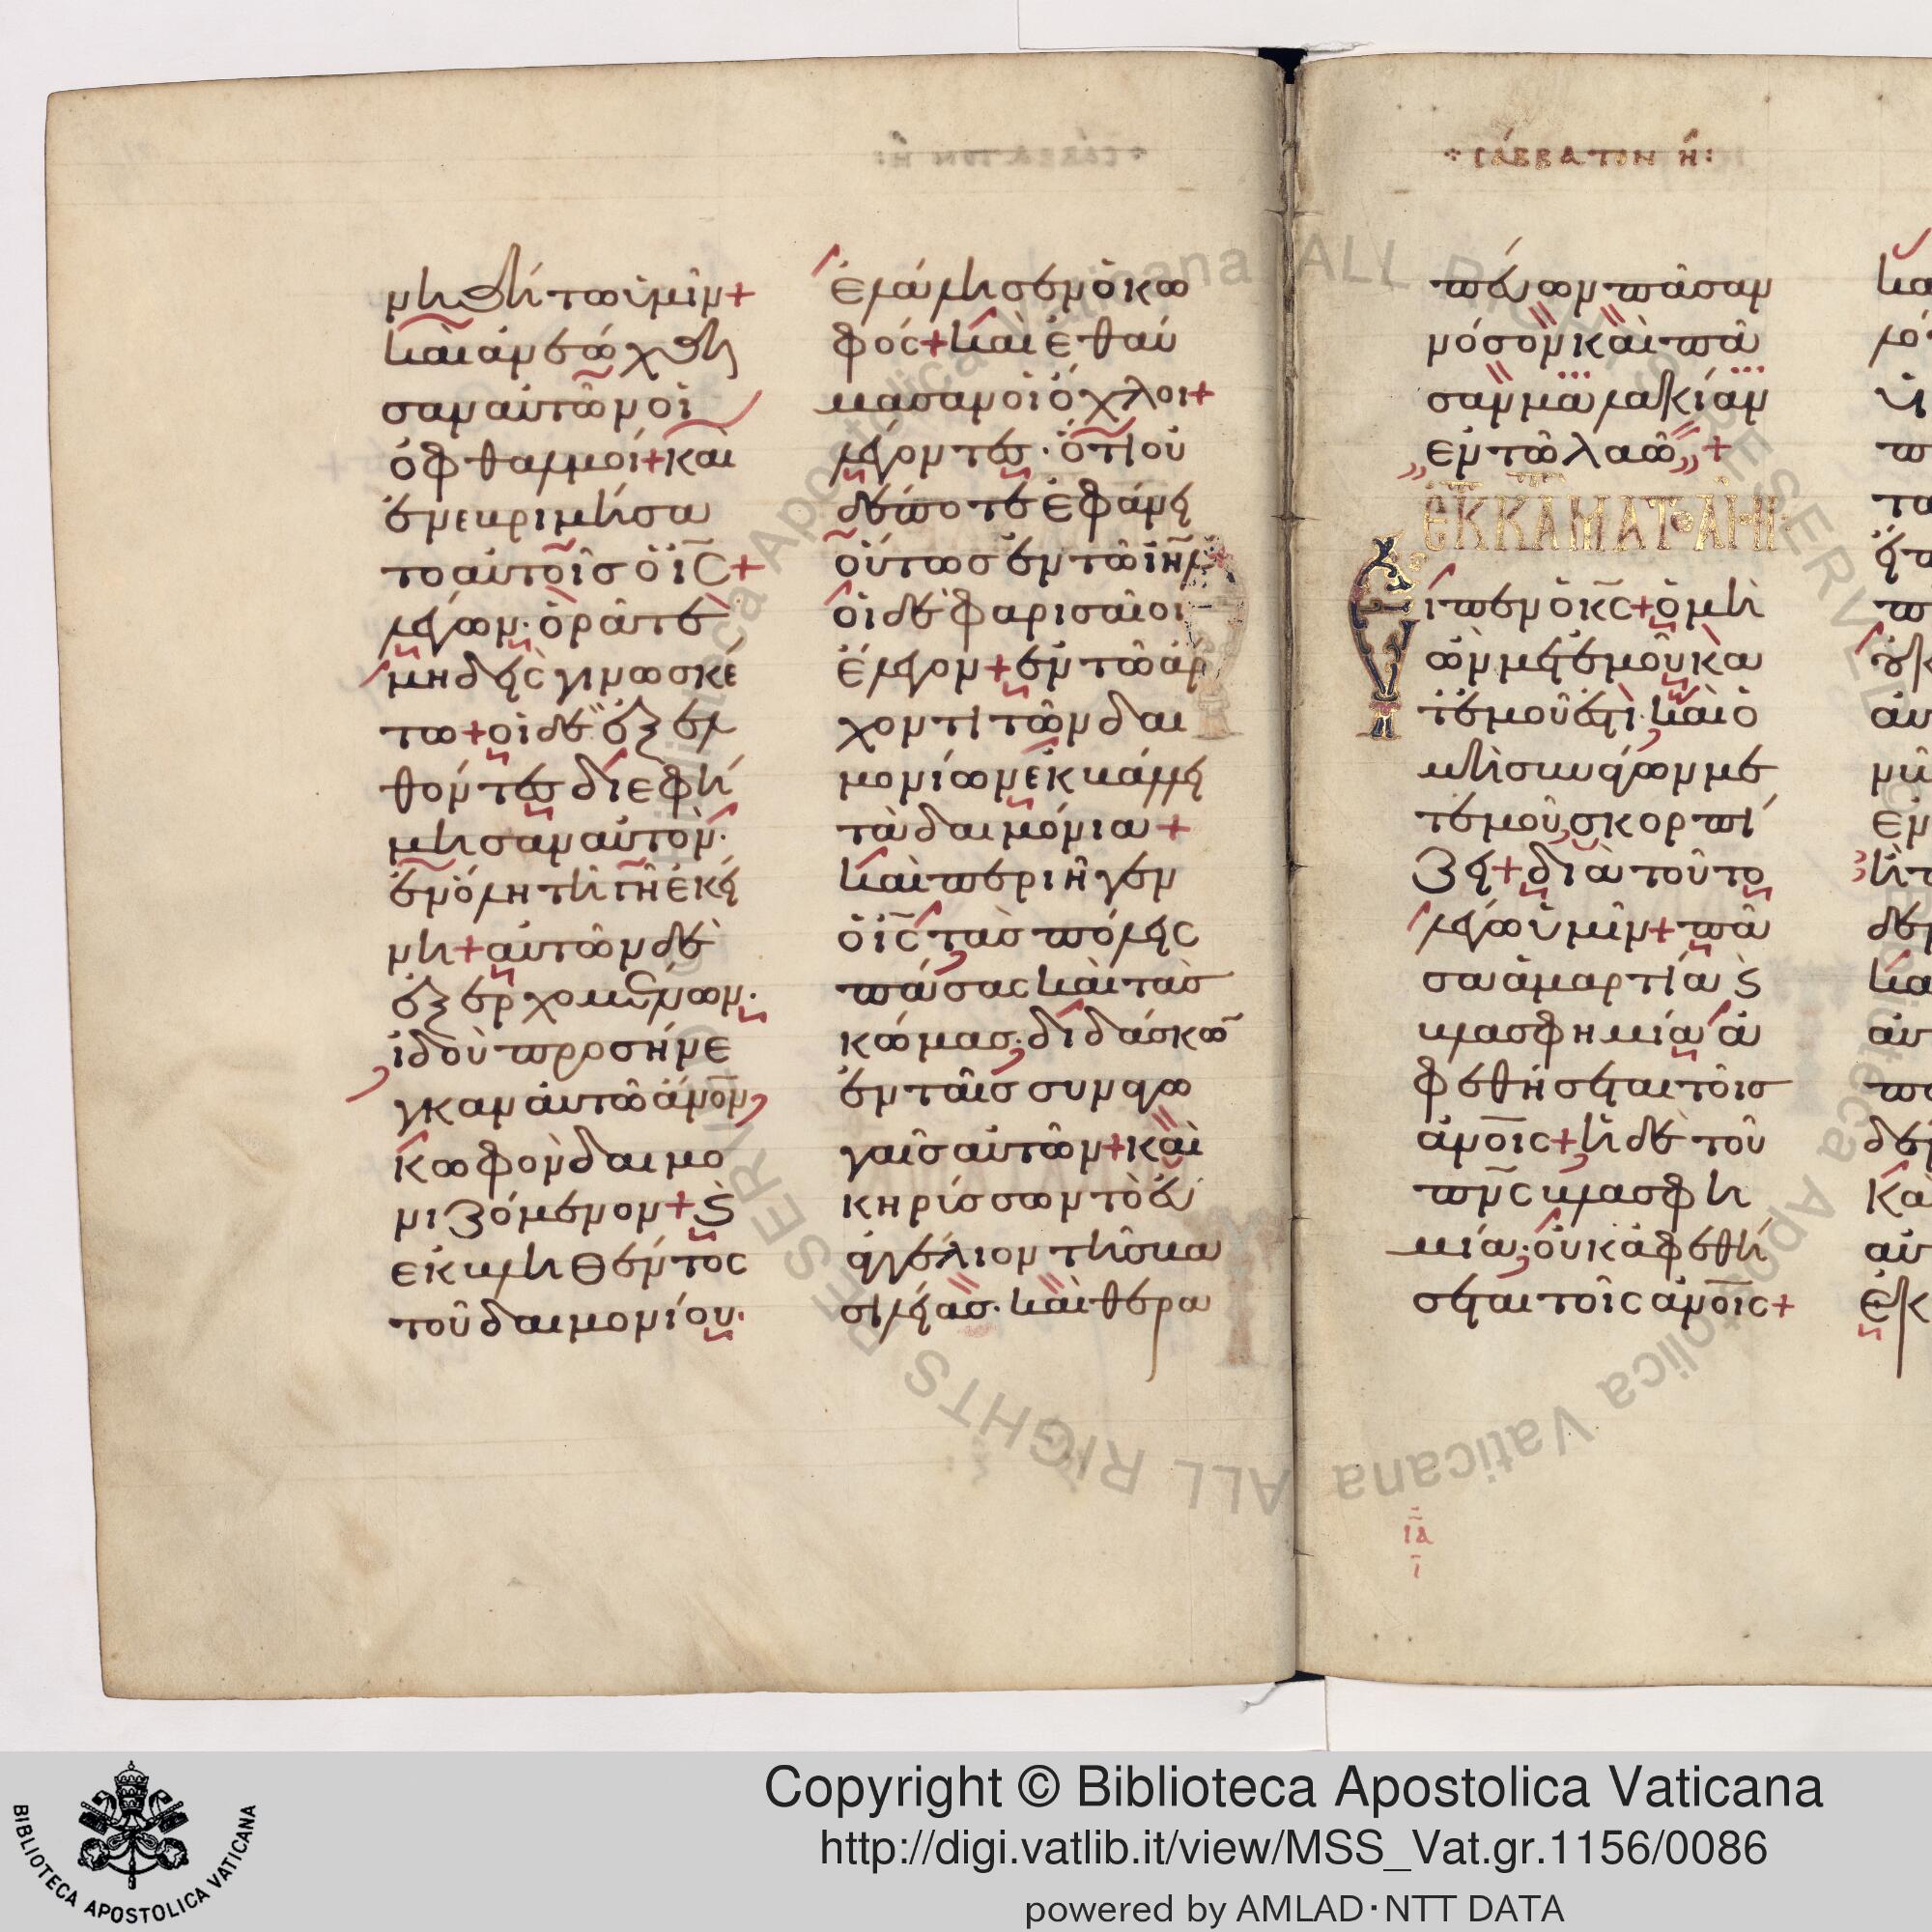 νηθήτω ὑμῖν+
καὶ ἀνεώχθη
σαν αὐτῶν οἱ
ὀφθαλμοί+ καὶ
ἐνεβριμήσα
το αὐτοῖς ὁ ις+
λέγων· ὁρᾶτε
μηδεὶς γινωσκέ
τω+ οἱ δὲ ἐξελ
θόντες διεφή
μησαν αὐτὸν·
ἐν ὅλη τῆ γῆ ἐκεί
νη+ αὐτῶν δὲ
ἐξερχομένων·
ἰδοὺ προσήνε
γκαν αὐτῶ ἄνον
κωφὸν δαιμο
νιζόμενον+ ϗ
ἐκβληθέντος
τοῦ δαιμονίου·
ἐλάλησεν ὁ κω
φός+ καὶ ἐθαύ
μασαν οἱ ὄχλοι+
λέγοντες· ὅτι οὐ
δέποτε ἐφάνη
οὕτως ἐν τῶ ιηλ+
οἱ δὲ φαρισαῖοι
ἔλεγον+ ἐν τῶ ἄρ
χοντι τῶν δαι
μονίων ἐκβάλλει
τὰ δαιμόνια+
καὶ περιῆγεν
ὁ ις τὰς πόλεις
πάσας καὶ τὰς
κώμας· διδάσκω
ἐν ταῖς συναγω
γαῖς αὐτῶν+ καὶ
κηρύσσων τὸ εὐ
αγγέλιον τῆς βα
σιλείας· καὶ θερα
·:· ΣΑΒΒΑΤΟΝ Η:
πεύων πᾶσαν
νόσον καὶ πᾶ
σαν μαλακίαν
ἐν τῶ λαῶ+
Εἶπεν ὁ κς+ ὁ μὴ
ὢν μετ' ἐμοῦ κα
τ' ἐμοῦ ἐστι· καὶ ὁ
μὴ συνάγων με
τ' ἐμοῦ, σκορπί
ζει+ διὰ τοῦτο
λέγω ὑμῖν+ πᾶ
σα ἁμαρτία ϗ
βλασφημία ἀ
φεθήσεται τοῖς
ἀνοις+ ἡ δὲ τοῦ
πνς βλασφη
μία· οὐκ ἀφεθή
σεται τοῖς ἀνοις+
ια
ι
Copyright © Biblioteca Apostolica Vaticana
http://digi.vatlib.it/view/MSS_Vat.gr.1156/0086
powered by AMLAD·NTT DATA
BIBLIOTECA APOSTOLICA VATICANA